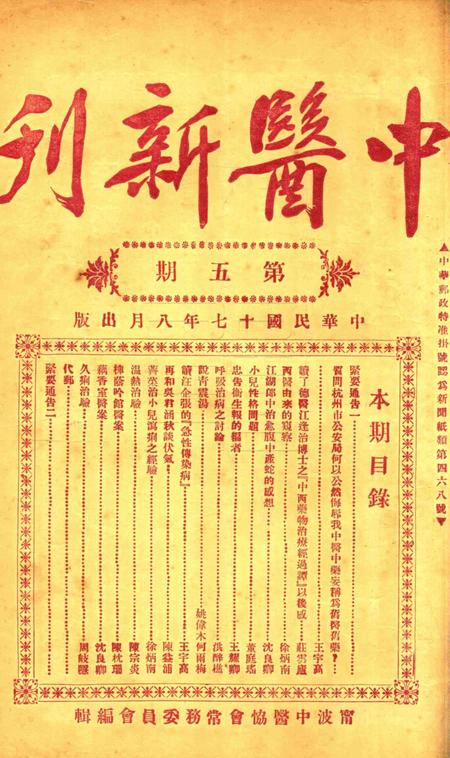 中醫新刊
第五期
中華民國十七年八月出版
▲中華郵政特准掛號認爲新聞紙類第四六八號▼
本期目錄
緊要通告一
質問杭州市公安局何以公然侮辱我中醫中藥妄稱爲舊醫舊藥？……王宇高
讀了德醫江逢治博士之『中西藥物治療經過譚』以後感……莊雲廬
西醫由來的窺察……徐炳南
江湖郎中治愈腹中產蛇的感想……沈良卿
小兒性格問題……董庭瑤
忠告衛生報的編者……王耀卿
呼吸治病之討論……洪醉樵
說青震湯……姚偉木何雨梅
讀汪企張的『急性傳染病』……王宇高
再和吳君涵秋談伏氣……陳益浦
薺菜治小兒瀉痢之經驗……徐炳南
溫熱治驗……陳宗炎
樟蔭吟館醫案……陳枕珊
藕香室醫案……沈良卿
久痢治驗……周岐隱
代郵
緊要通告二
甯波中醫協會常務委員會編輯